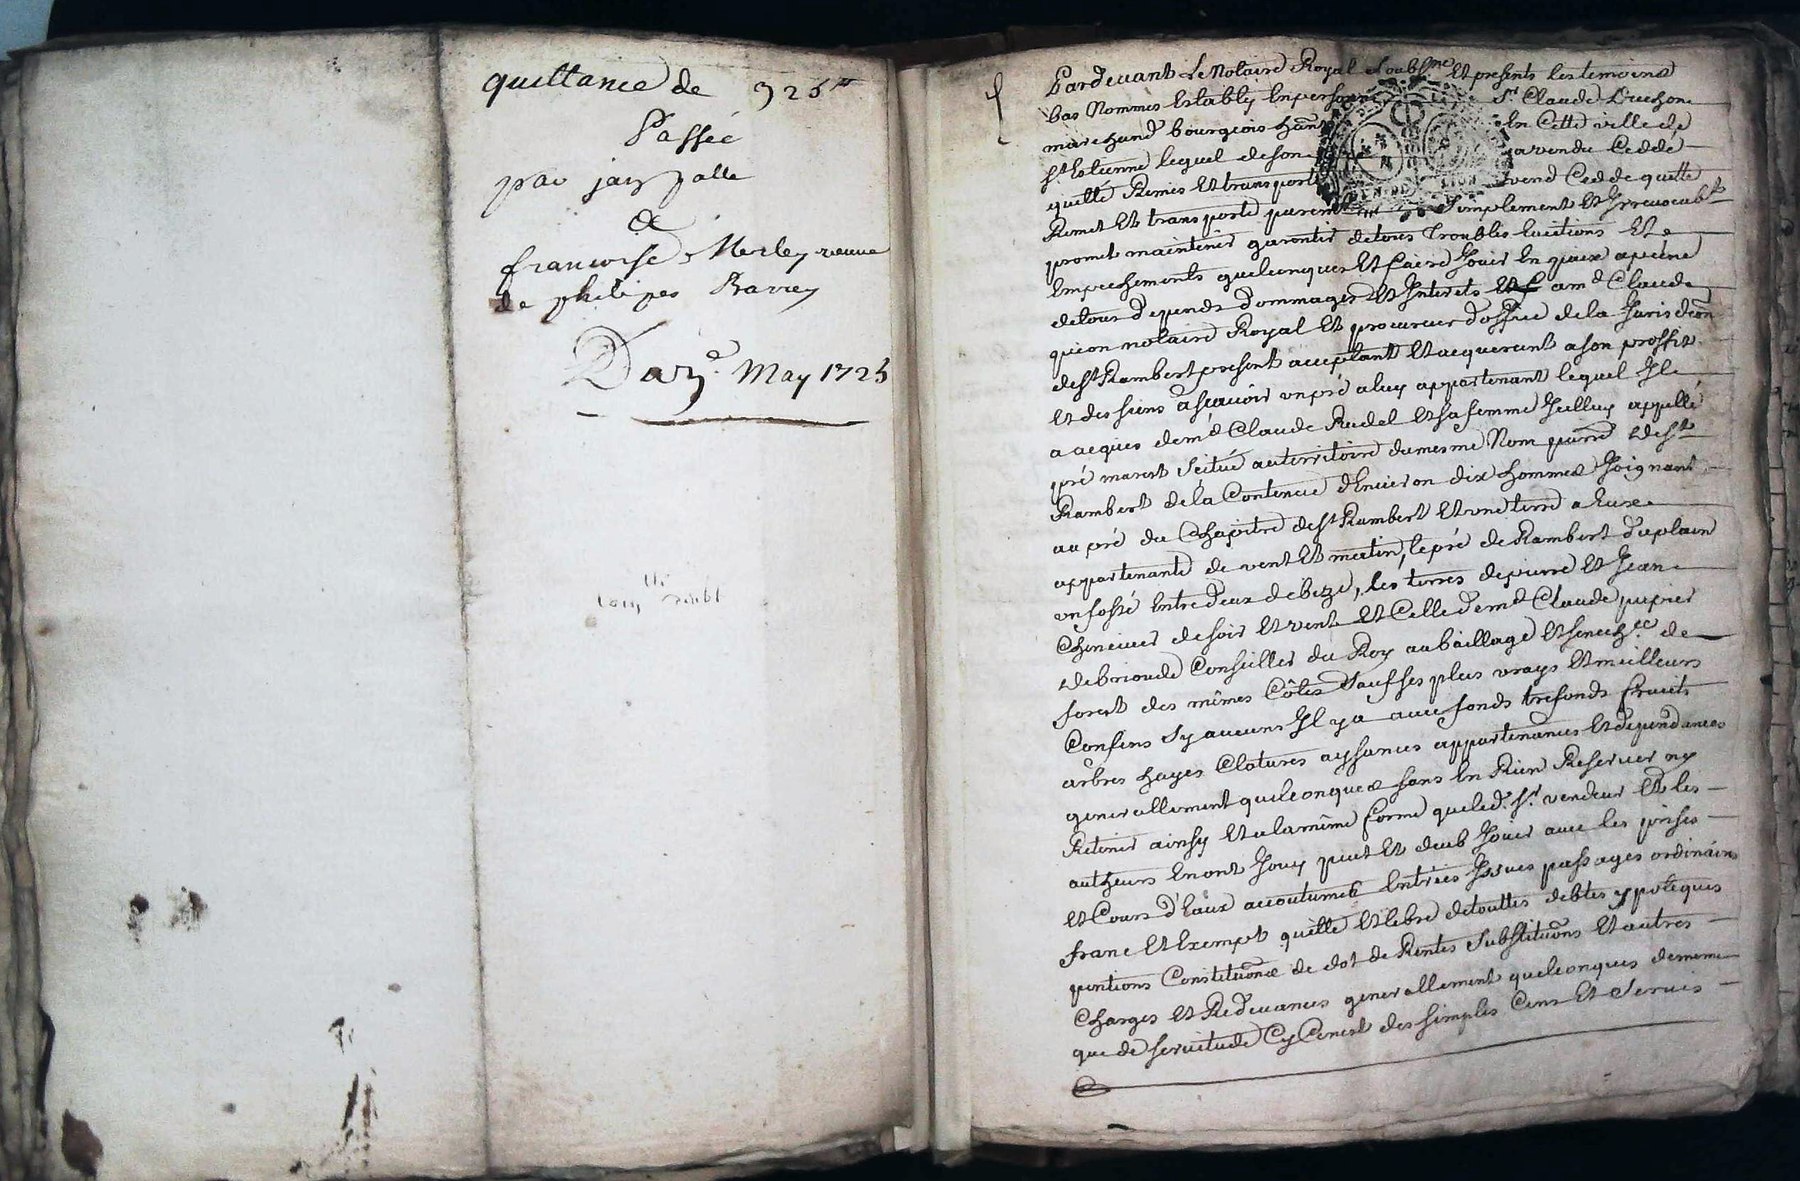 quittance de 325
Passée
par jay palle
&
francoise Merley veuve
de philipes Barrey
May 1725
Pardevant Le Notaire Royal soubsne Et presents les temoins
bas Nommes Estably En personne Sr Claude
marchand bourgeois En Cette ville de
St Estienne lequel de son a vendu Ceddé
quitté Remis Et transporté vend Cedde quitte
Remet Et transporte purement simplement Et Irrevocablt
promet maintenir garentir de tous Troubles Euictions Et
Empechements quelconques Et faire Jouir En paix a peine
de tous depends dommages Et Interets a md Claude
notaire Royal Et procureur d'office de la Jurisdicon
de St Rambert present acceptant Et acquerant a son proffit
Et des siens ascauoir un pré a luy appartenant lequel Il
a acquis de md Claude Rudel Et sa femme Jcelluy appellé
pré marest scitué au territoire du mesme Nom St
Rambert de la Contenue d'Enuiron dix hommes Joignant
au pré du Chapitre de St Rambert Et une terre a Eux
appartenante de vent Et matin, le pré de Rambert duplain
un fossé Entre deux de bize, les terres de pierre Et Jean
de soir Et vent Et Celle de md Claude pupier
de brioude Conseiller du Roy au baillage Et senechée de
forest des mêmes Côtes sauf ses plus vrays Et meilleurs
Confins sy aucuns Il y a auec fonds trefonds fruits
arbres hayes Clotures aysances appartenances Et dependances
generallement quelconques sans En Rien Reseruer ny
Retenir ainsy Et a la même forme que led. Sr. vendeur Et les
autheurs En ont Jouy peut Et deub Jouir auec les prises
Et Cours d'Eaux accoutumés Entrées Issues passages ordinaires
franc Et Exempt quitte Et libre de touttes debtes ypoteques
pentions Constitutions de dot de Rentes Substitutions Et autres
Charges Et Redeuances generallement quelconques de meme
que de seruitude Cy Ce n'est des simples Cens Et Seruis